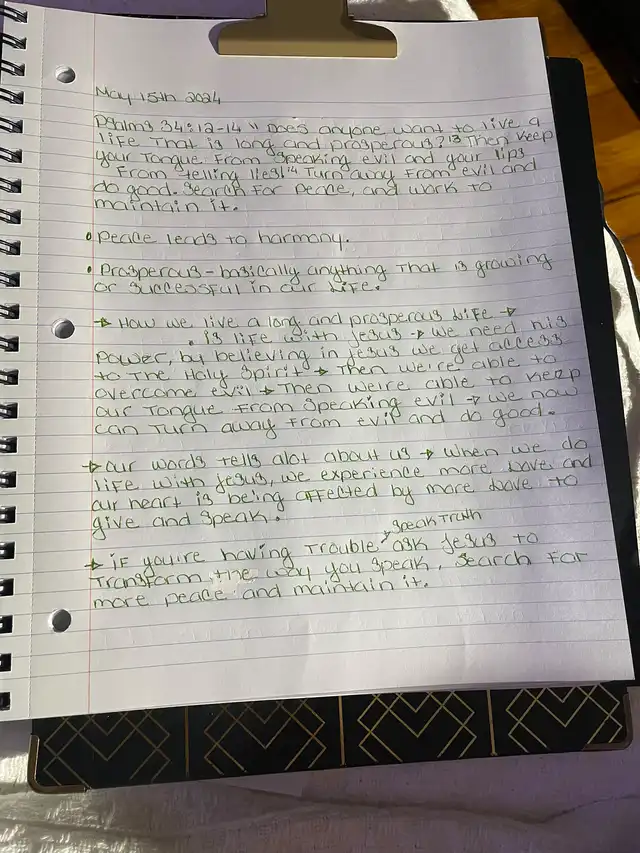 May 15th 2024
Psalms 34:12-14 "Does anyone want to live a
life that is long and prosperous? 13 Then keep
your tongue from speaking evil and your lips
from telling lies! 14 Turn away from evil and
do good. Search for peace, and work to
maintain it.
• Peace leads to harmony.
• Prosperous - basically anything that is growing
or successful in our life.
→ How we live a long, and prosperous life →
. is life with Jesus → we need his
power, by believing in Jesus we get access
to the Holy Spirit → Then we're able to
overcome evil → Then we're able to keep
our tongue from speaking evil → we now
can turn away from evil and do good.
→ our words tells alot about us → when we do
life with Jesus, we experience more love and
our heart is being affected by more love to
give and speak.
speak truth
→ if you're having trouble, ask Jesus to
transform the way you speak. Search for
more peace and maintain it.